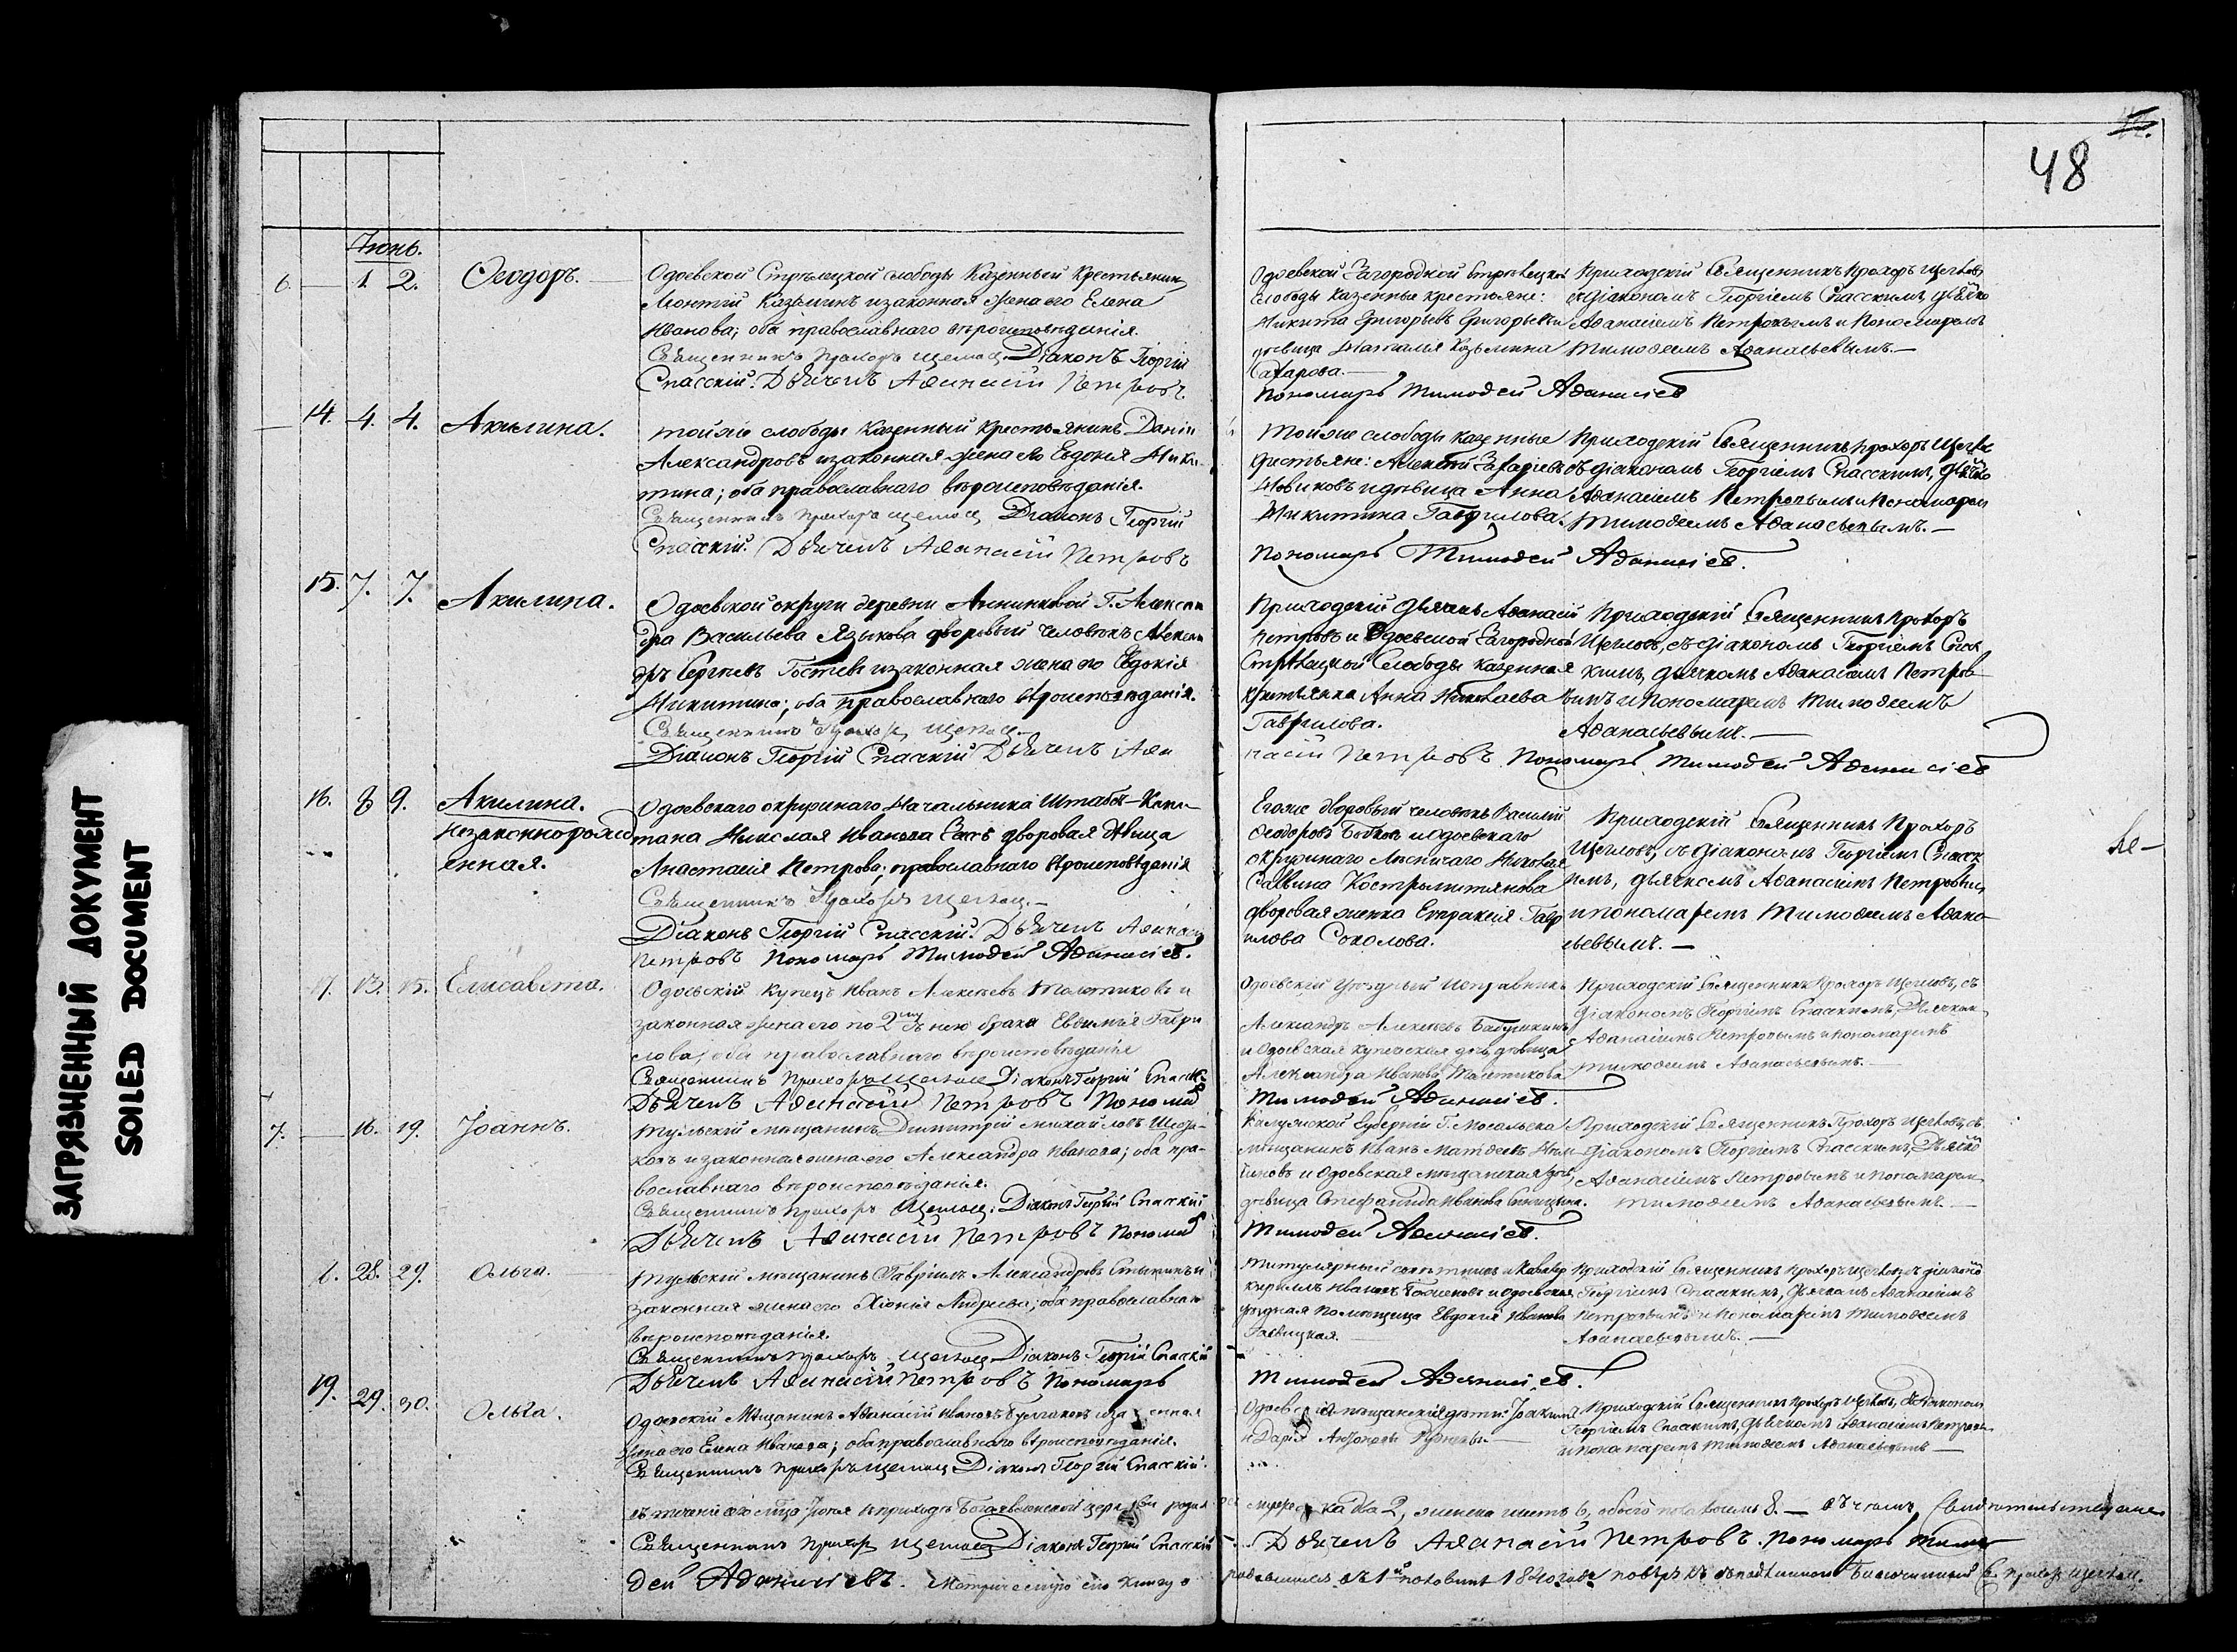 ЗАГРЯЗНЕННЫЙ ДОКУМЕНТ
SOILED DOCUMENT
48
Іюнь.
6. — 1 2. Ѳеодоръ.
Одоевской Стрѣлецкой слободы Казенный крестьянинъ
Леонтій Казьминъ и законная жена его Елена
Иванова; оба православнаго вѣроисповѣданія.
Священникъ Прохоръ Щегловъ. Діаконъ Георгій
Спасскій. Дьячекъ Аѳанасій Петровъ.
Одоевской Загородной Стрѣлецкой
слободы казенные крестьяне:
Никита Григорьевъ и
дѣвица Наталья Козьмина
Захарова.
Приходскій Священникъ Прохоръ Щегловъ
съ діакономъ Георгіемъ Спасскимъ, дьячко
Аѳанасіемъ Петровымъ и Пономаремъ
Тимоѳеемъ Аѳанасьевымъ. —
Пономарь Тимоѳей Аѳанасіев
14. 4. 4. Акилина.
Тойже слободы казенный крестьянинъ Даніи
Александровъ и законная жена его Евдокія Ники-
тина; оба православнаго вѣроисповѣданія.
Священникъ Прохоръ Щегловъ Діаконъ Георгій
Спасскій. Дьячекъ Аѳанасій Петровъ
Тойже слободы казенные
крестьяне: Алексѣй Захаріевъ
Новиковъ и дѣвица Анна
Никитина Гаврилова.
Приходскій Священникъ Прохоръ Щегло
съ діакономъ Георгіемъ Спасскимъ, дьячко
Аѳанасіемъ Петровымъ и Пономарем
Тимоѳеемъ Аѳанасьевымъ. —
Пономарь Тимоѳей Аѳанасіев.
15. 7. 7. Акилина.
Одоевской округи деревни Аннинковой Г. Алексан
дра Васильева Языкова дворовый человѣкъ Алексан
дръ Сергѣевъ Гостевъ и законная жена его Евдокія
Никитина; оба православнаго вѣроисповѣданія.
Священникъ Прохоръ Щегловъ
Діаконъ Георгій Спасскій Дьячекъ Аѳа
Приходскій дьячекъ Аѳанасій
Петровъ и Одоевской Загородной
Стрѣлецкой Слободы казенная
крестьянка Анна Николаева
Гаврилова.
Приходскій Священникъ Прохоръ
Щегловъ, съ діакономъ Георгіемъ Спас
кимъ, дьячкомъ Аѳанасіемъ Петров
ымъ и Пономаремъ Тимоѳеемъ
Аѳанасьевымъ. —
насій Петровъ Пономарь Тимоѳей Аѳанасіев
16. 8 9. Акилина.
незаконнорожд
енная.
Одоевскаго окружнаго Начальника Штабсъ-Капи-
тана Николая Иванова дворовая дѣвица
Анастасія Петрова; православнаго вѣроисповѣданія
Священникъ Прохоръ Щегловъ. —
Діаконъ Георгій Спасскій. Дьячекъ Аѳанасій
Петровъ Пономарь Тимоѳей Аѳанасіев.
Егоже дворовый человѣкъ Василій
Ѳеодоровъ и Одоевскаго
окружнаго Лѣсничаго Николая
Саввина
дворовая женка Евпраксія Гавр
илова Соколова.
Приходскій Священникъ Прохоръ
Щегловъ, съ діакономъ Георгіемъ Спасск
имъ, дьячкомъ Аѳанасіемъ Петровым
и пономаремъ Тимоѳеемъ Аѳана
сьевымъ. —
17. 13. 15. Елисавета.
Одоевскій купецъ Иванъ Алексѣевъ и
законная жена его по 2му съ нею браку Евдокія Гаври
лова; оба православнаго вѣроисповѣданія
Священникъ Прохоръ Щегловъ Діаконъ Георгій Спасск
Дьячекъ Аѳанасій Петровъ Пономар
Одоевскій уѣздный Исправникъ
Александръ Алексѣевъ Бабушкинъ
и Одоевская купеческая дочь дѣвица
Александра Иванова
Приходскій Священникъ Прохоръ Щегловъ, съ
діакономъ Георгіемъ Спасскимъ, Дьячком
Аѳанасіемъ Петровымъ и пономаремъ
Тимоѳеемъ Аѳанасьевымъ. —
Тимоѳей Аѳанасіев.
7. — 16. 19. Іоаннъ.
Тульскій мѣщанинъ Димитрій Михайловъ
и законная жена его Александра Иванова; оба пра-
вославнаго вѣроисповѣданія.
Священникъ Прохоръ Щегловъ. Діаконъ Георгій Спасскій
Дьячекъ Аѳанасій Петровъ Пономар
Калужской Губерніи Г. Мосальска
мѣщанинъ Иванъ Матѳеевъ
и Одоевская мѣщанская дочь,
дѣвица Стефанида Иванова
Приходскій Священникъ Прохоръ Щегловъ, съ
діакономъ Георгіемъ Спасскимъ, Дьячко
Аѳанасіемъ Петровымъ и пономарем
Тимоѳеемъ Аѳанасьевымъ. —
Тимоѳей Аѳанасіев.
28. 29. Ольга.
Тульскій мѣщанинъ Гавріилъ Александровъ и
законная жена его Хіонія Андреева; оба православнаго
вѣроисповѣданія.
Священникъ Прохоръ Щегловъ Діаконъ Георгій Спасскій
Дьячекъ Аѳанасій Петровъ Пономарь
Титулярный совѣтникъ и Кавалер
Кирилъ Ивановъ и Одоевская
уѣздная Помѣщица Евдокія Иванова
Приходскій Священникъ Прохоръ Щегловъ съ діаконо
Георгіемъ Спасскимъ, Дьячкомъ Аѳанасіемъ
Петровымъ и Пономаремъ Тимоѳеемъ
Аѳанасьевымъ. —
Тимоѳей Аѳанасіев.
19. 29. 30. Ольга.
Одоевскій Мѣщанинъ Аѳанасій Ивановъ и законная
жена его Елена Иванова; оба православнаго вѣроисповѣданія.
Священникъ Прохоръ Щегловъ Діаконъ Георгій Спасскій.
Одоевскія мѣщанскія дѣти: Іоакимъ
и Дарія
Приходскій Священникъ Прохоръ Щегловъ, съ діакономъ
Георгіемъ Спасскимъ, Дьячкомъ Аѳанасіемъ Петровым
и пономаремъ Тимоѳеемъ Аѳанасьевымъ —
въ приходѣ Богоявленской церкви
2, женска шесть 6, обоего пола восемь 8. — въ чемъ свидѣтельствуемъ
Священникъ Прохоръ Щегловъ Діаконъ Георгій Спасскій
Дьячекъ Аѳанасій Петровъ. Пономарь Тимо
ѳей Аѳанасіевъ. Метрическую сію книгу о
родившихся въ 1й половинѣ 1840 года Благочинный Прохоръ Щегловъ.